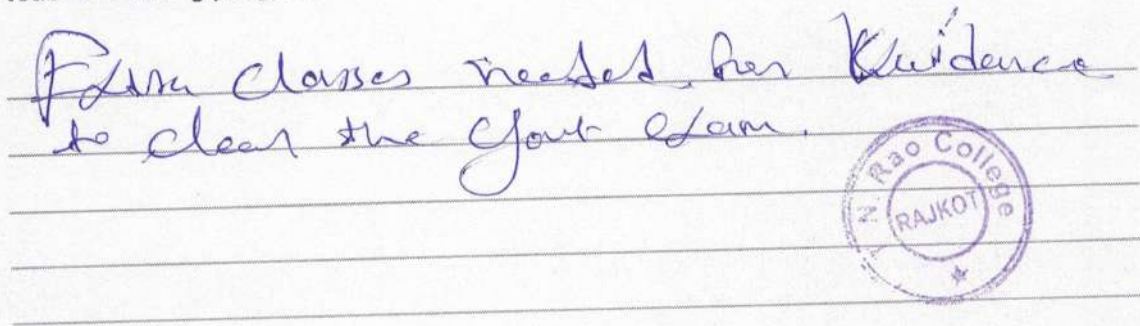 Extra classes needed for Kuidance
to clear the Govt exam.
T. N. Rao College
RAJKOT